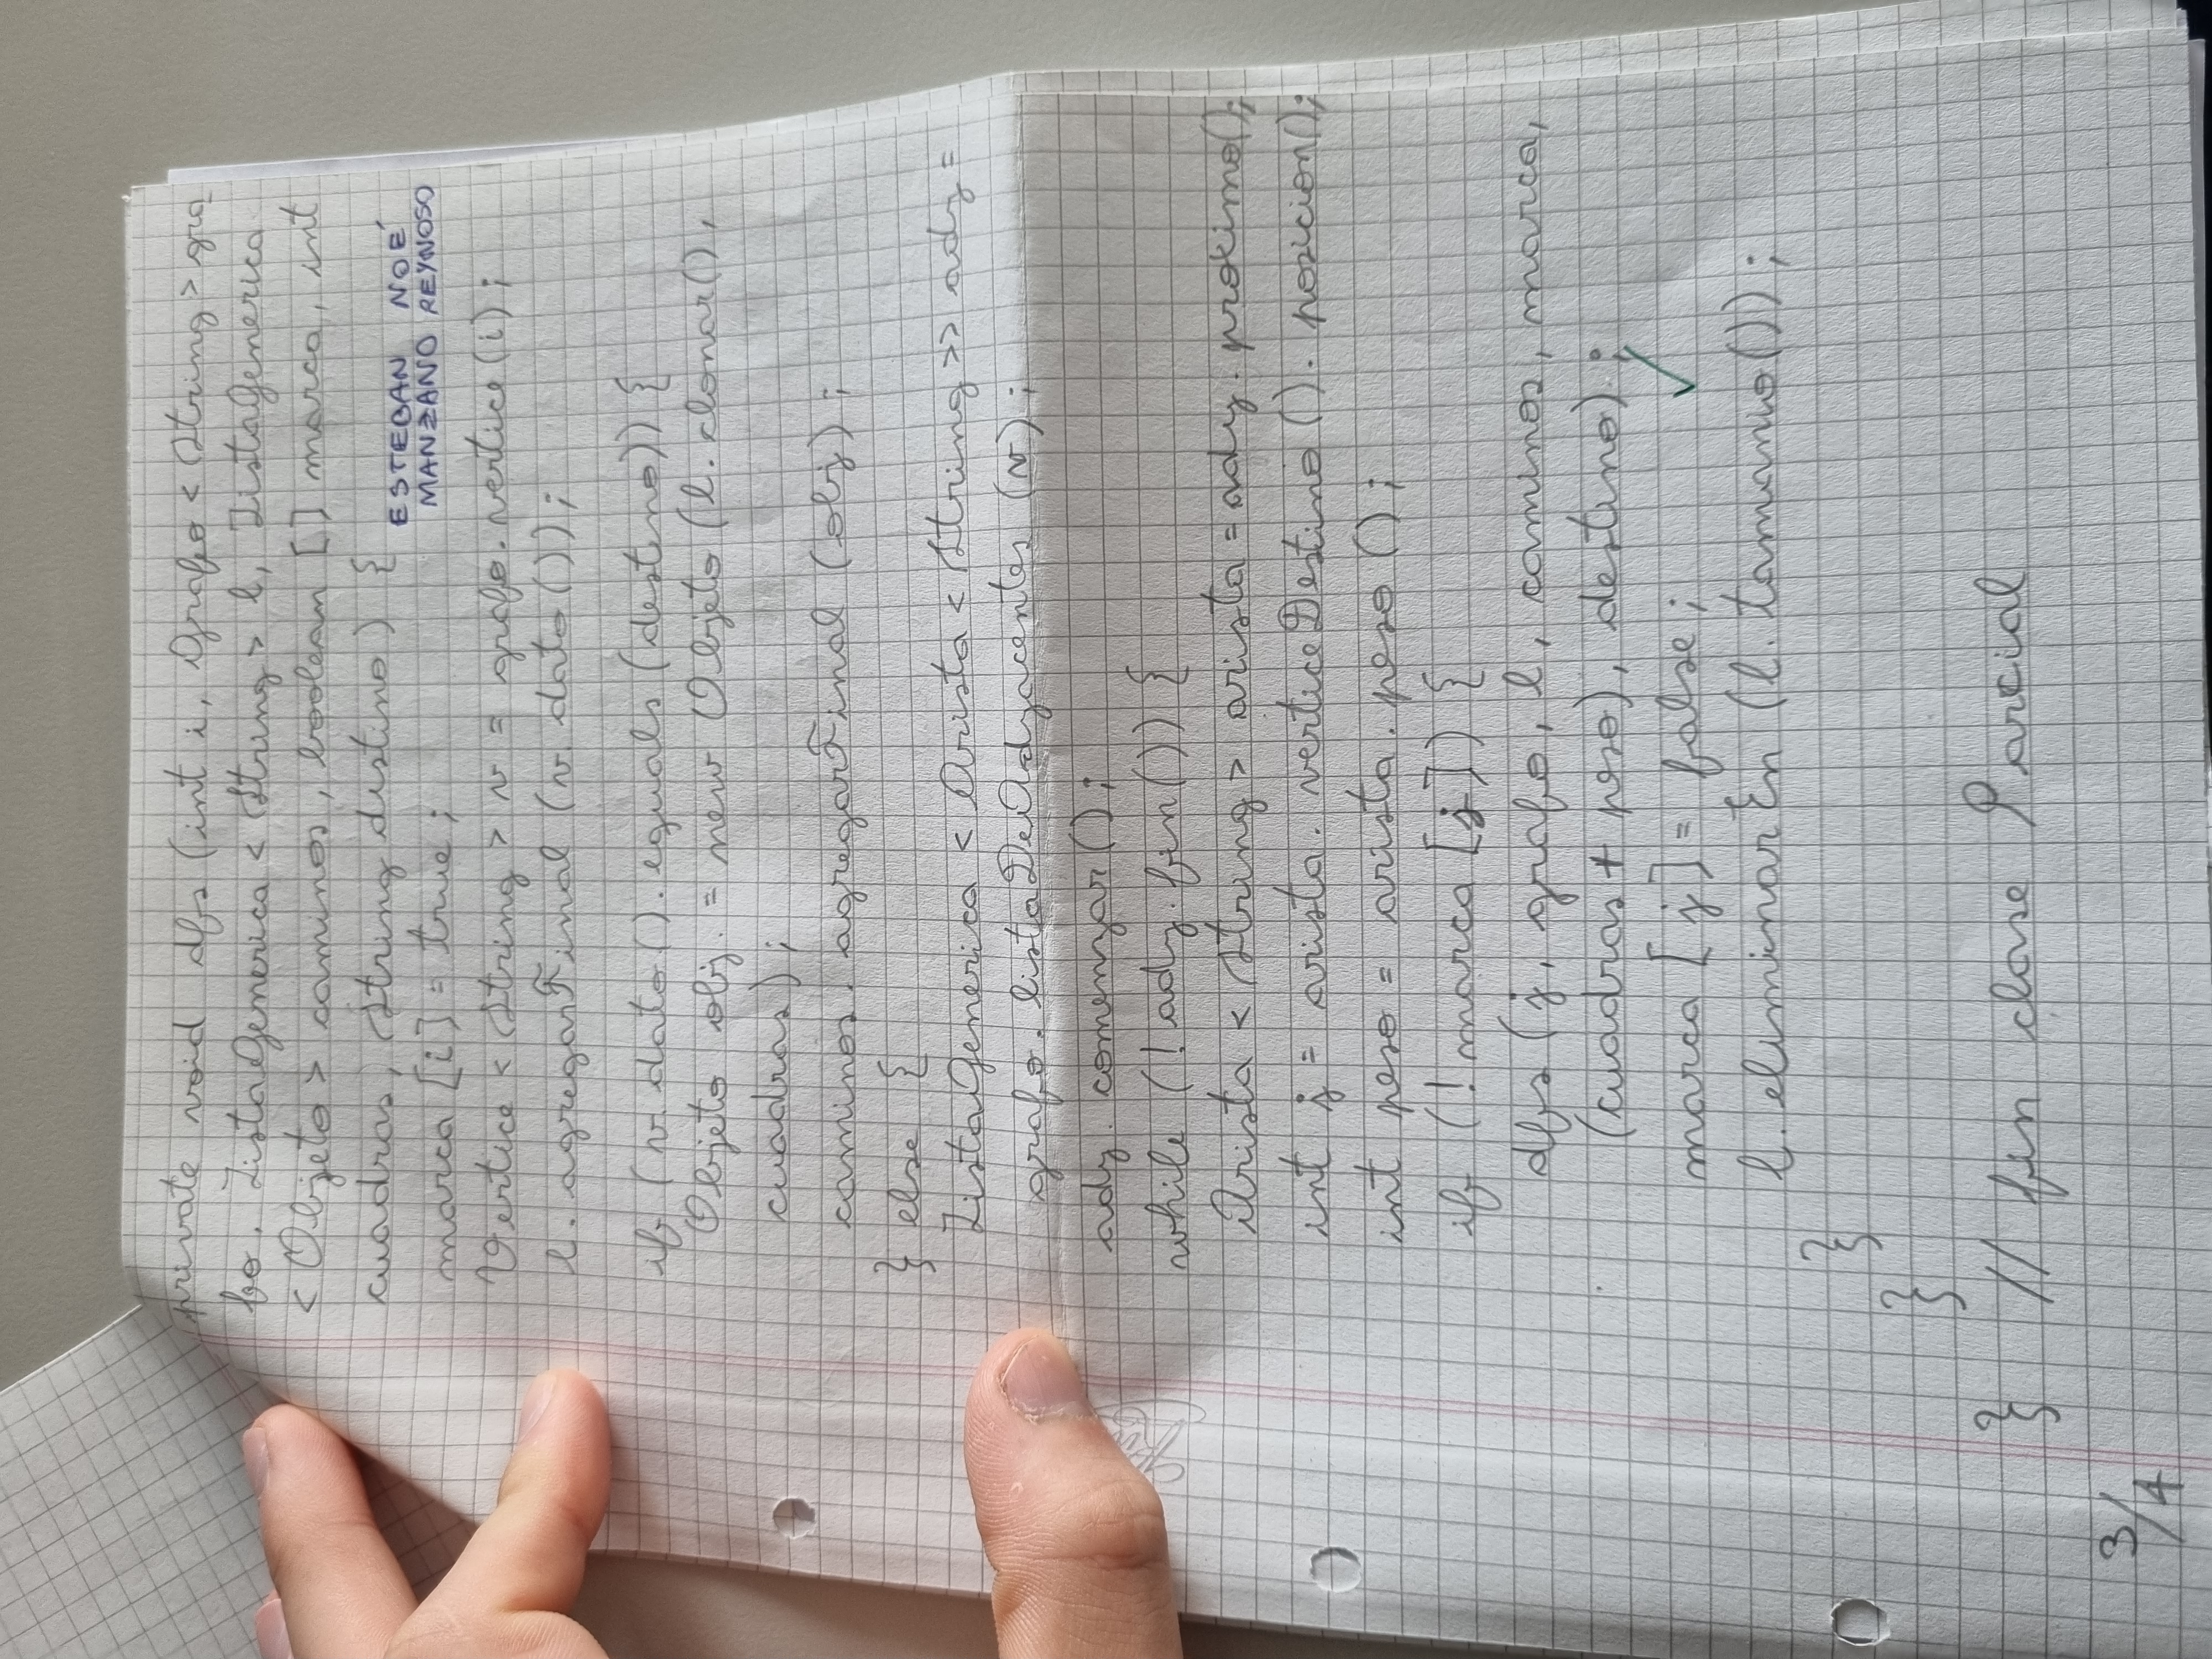 private void dfs (int i, Grafo < String > gra
fo, ListaGenerica < String > l, ListaGenerica
< Objeto > caminos, boolean [] marca, int
cuadras, String destino) {
ESTEBAN NOÉ
MANZANO REYNOSO
marca [i] = true ;
Vertice < String > v = grafo.vertice (i) ;
l. agregarFinal (v.dato ()) ;
if (v.dato (). equals (destino)) {
Objeto obj. = new Objeto (l. clonar(),
cuadras) ;
caminos. agregarFinal (obj) ;
} else {
ListaGenerica < Arista < String >> ady =
grafo. listaDeAdyacentes (v) ;
ady. comenzar () ;
while (! ady. fin ()) {
Arista < String > arista = ady. proximo();
int j = arista. verticeDestino (). posicion();
int peso = arista. peso () ;
if (! marca [j]) {
dfs (j, grafo, l, caminos, marca,
(cuadras + peso), destino) ;
marca [j] = false ;
l. eliminarEn (l. tamanio()) ;
}
}
} // fin clase Parcial
3/4